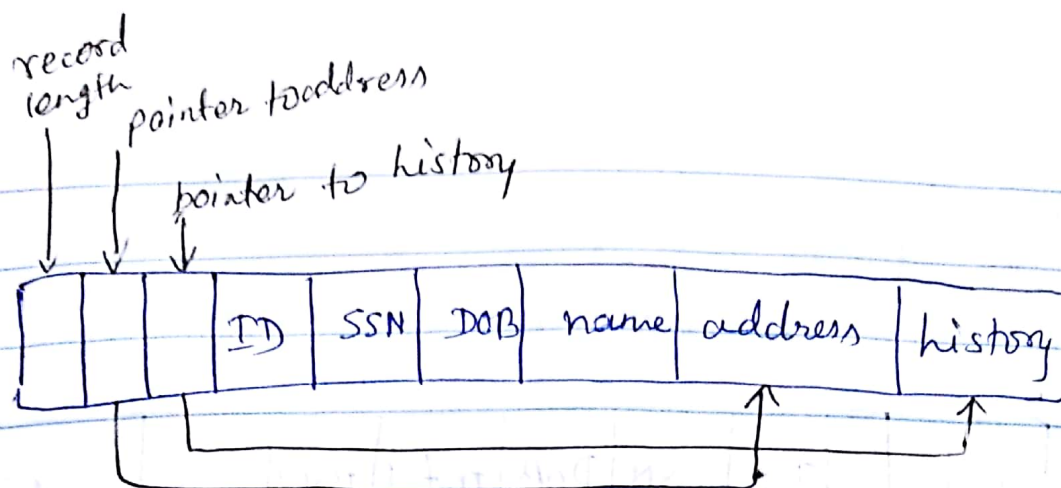 record
length
pointer toaddress
pointer to history
ID SSN DOB name address history